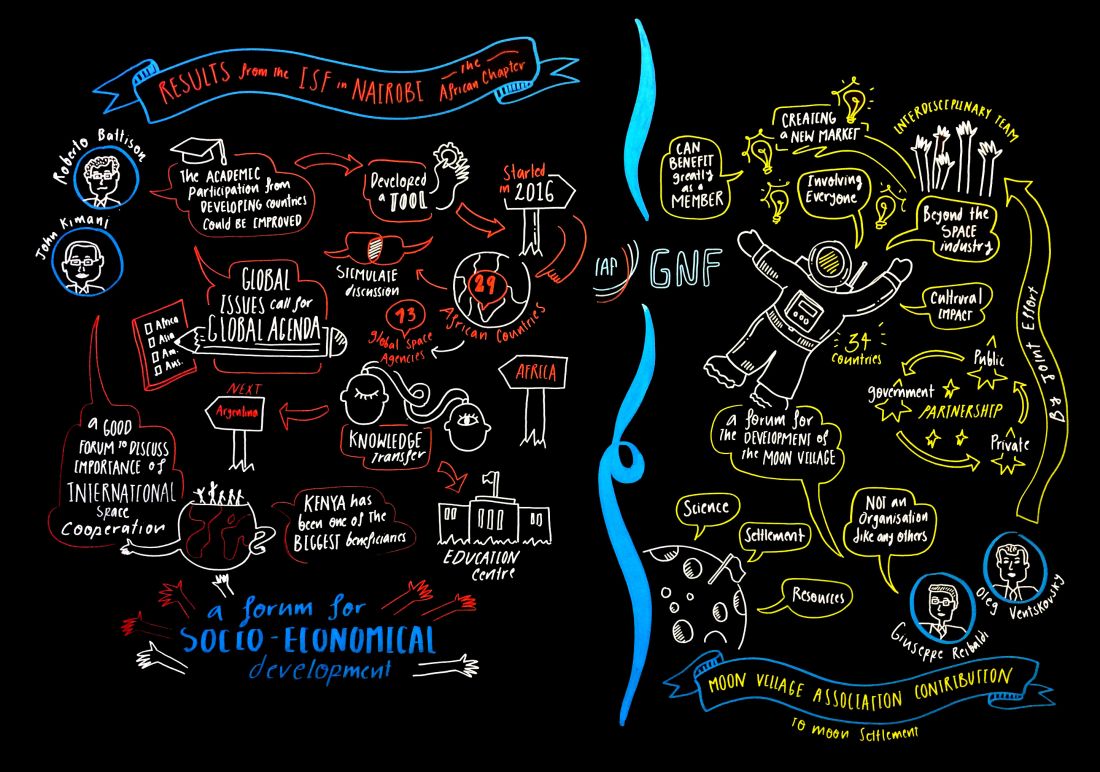 RESULTS from the ISF in NAIROBI the African Chapter
Roberto Battison
John Kimani
The ACADEMIC
participation from
DEVELOPING countries
could be IMPROVED
Developed
a TOOL
Started
in 2016
STIMULATE
discussion
29
African Countries
13
global Space
Agencies
GLOBAL
ISSUES call for
GLOBAL AGENDA
Africa
Asia
Am.
Aus.
NEXT
Argentina
AFRICA
KNOWLEDGE
transfer
a GOOD
FORUM to DISCUSS
IMPORTANCE of
INTERNATIONAL
space
cooperation
KENYA has
been one of the
BIGGEST beneficiaries
EDUCATION
Centre
a forum for
SOCIO-ECONOMICAL
development
IAP
GNF
CREATING
a NEW MARKET
INTERDISCIPLINARY TEAM
CAN
BENEFIT
greatly
as a
MEMBER
Involving
Everyone
Beyond the
SPACE
industry
Cultrural
IMPACT
34
countries
Public
government
PARTNERSHIP
Private
A Joint Effort
a forum for
the DEVELOPMENT of
the MOON VILLAGE
Science
Settlement
Resources
NOT an
Organisation
like any others
Oleg Ventskovsky
Giuseppe Reibaldi
MOON VILLAGE ASSOCIATION CONTRIBUTION
to moon settlement